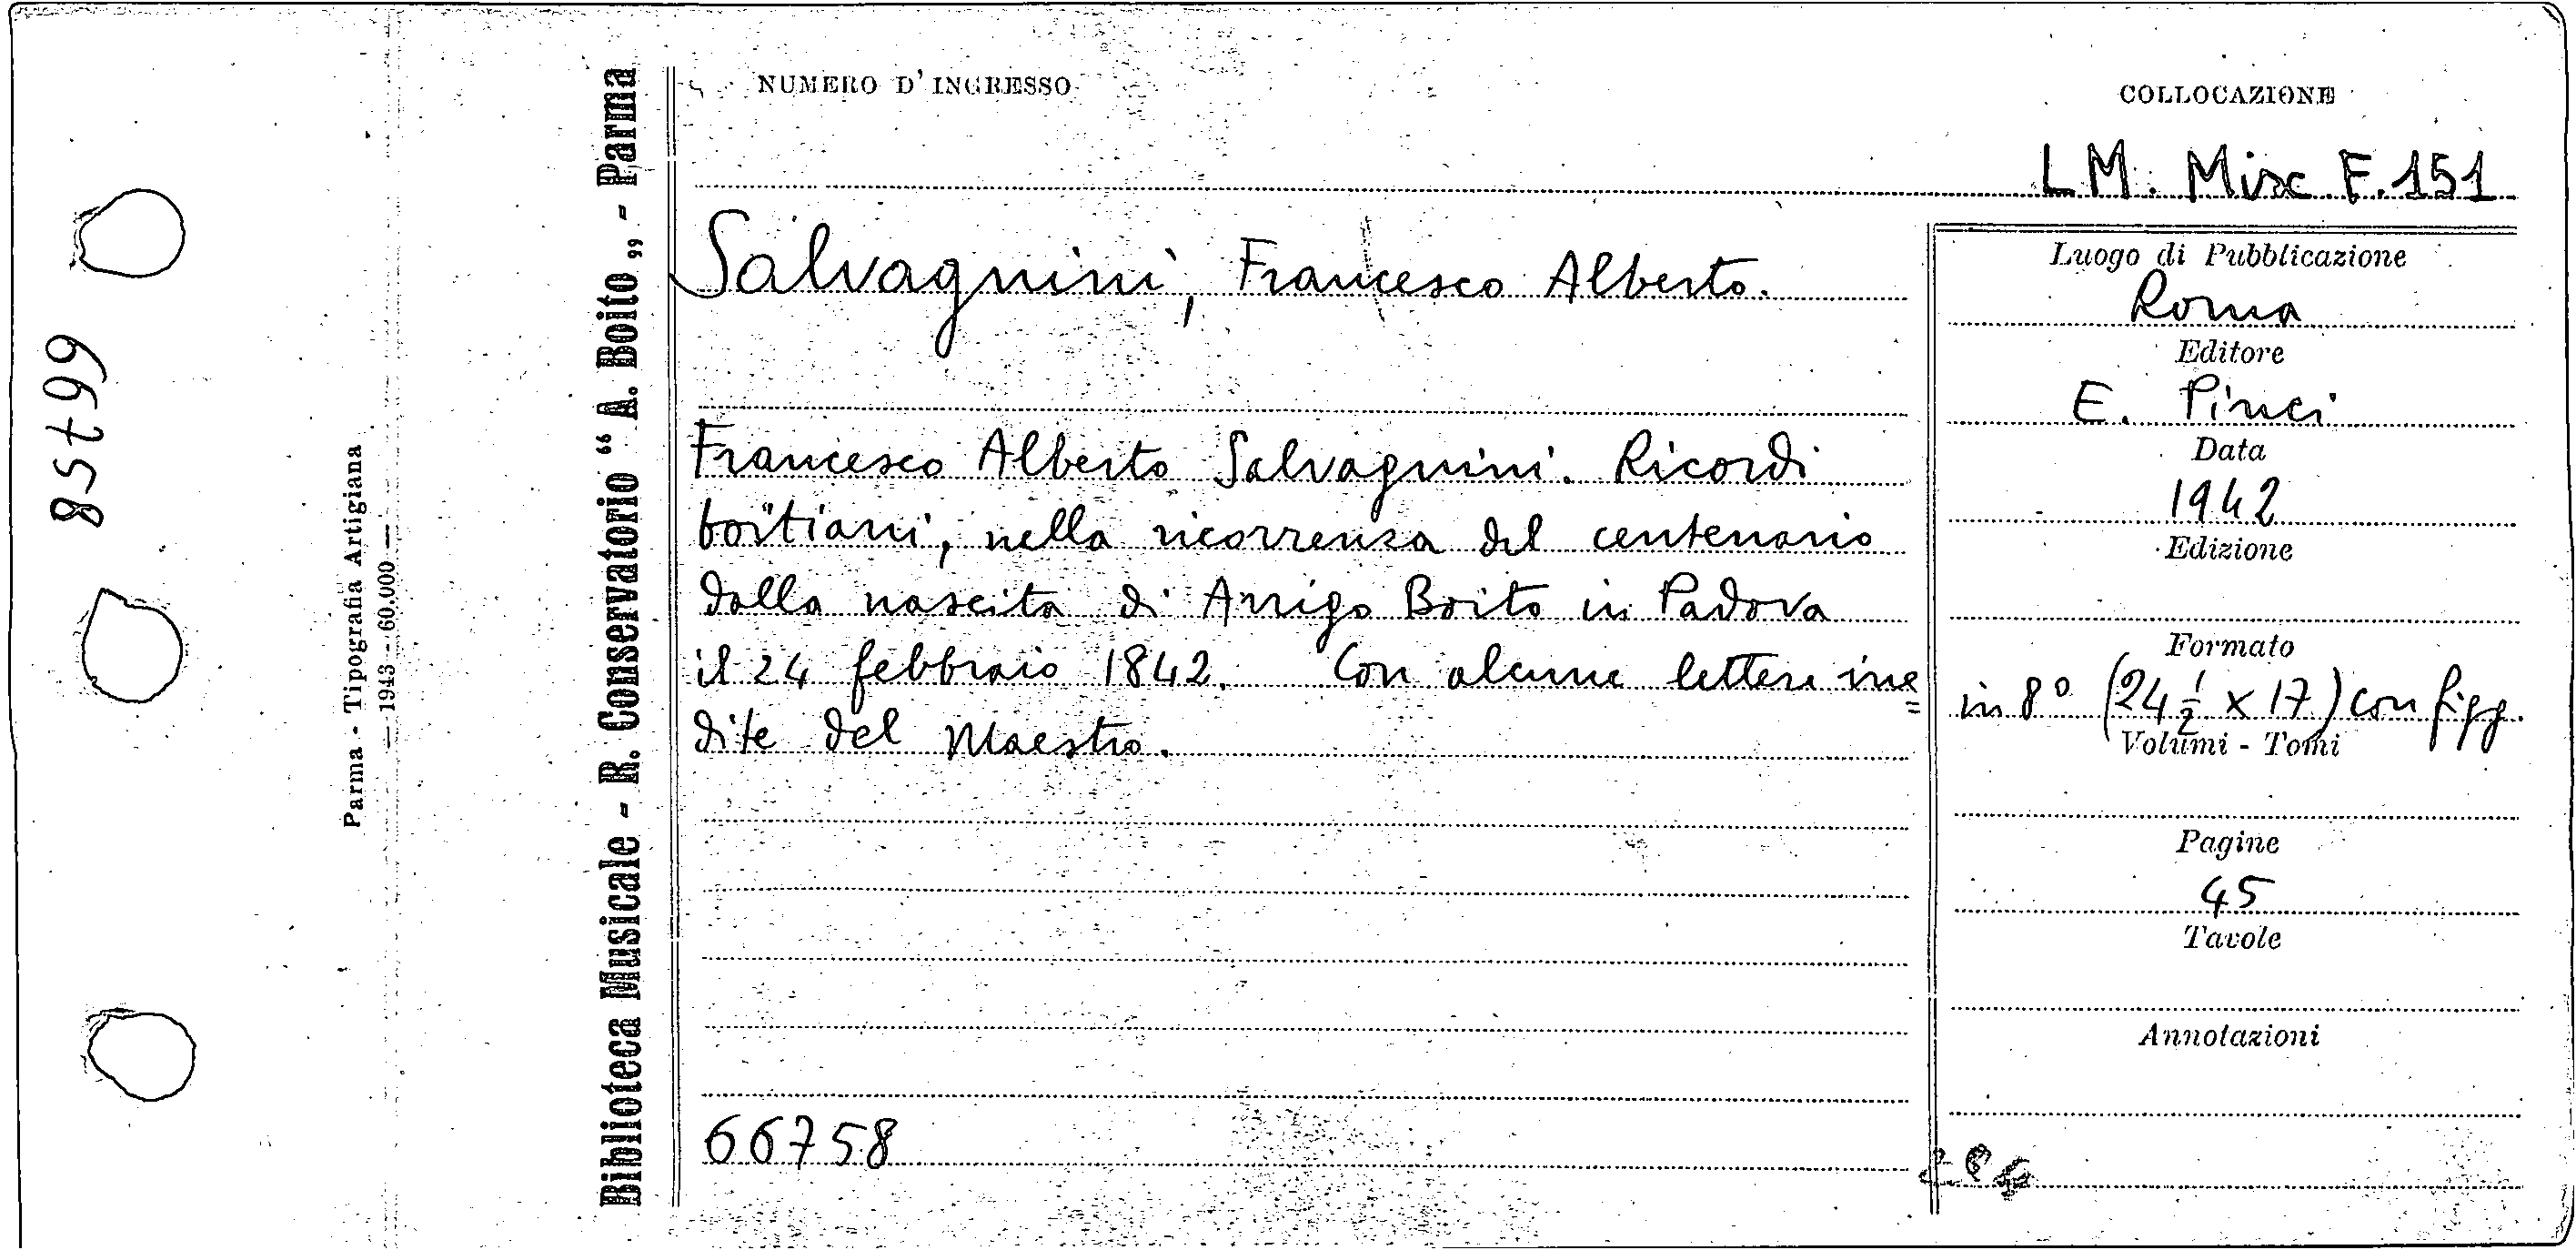 66758
Parma - Tipografia Artigiana
— 1943 - 60.000 —
Biblioteca Musicale - R. Conservatorio “ A. Boito „ - Parma
NUMERO D' INGRESSO
COLLOCAZIONE
LM. Misc F.151
Salvagnini, Francesco Alberto.
Francesco Alberto Salvagnini. Ricordi
boitiani, nella ricorrenza del centenario
dalla nascita di Arrigo Boito in Padova
il 24 febbraio 1842. Con alcune lettere ine=
dite del Maestro.
66758
Luogo di Pubblicazione
Roma
Editore
E. Pinci
Data
1942
Edizione
Formato
in 8° (24 1/2 x 17) con figg.
Volumi - Tomi
Pagine
45
Tavole
Annotazioni